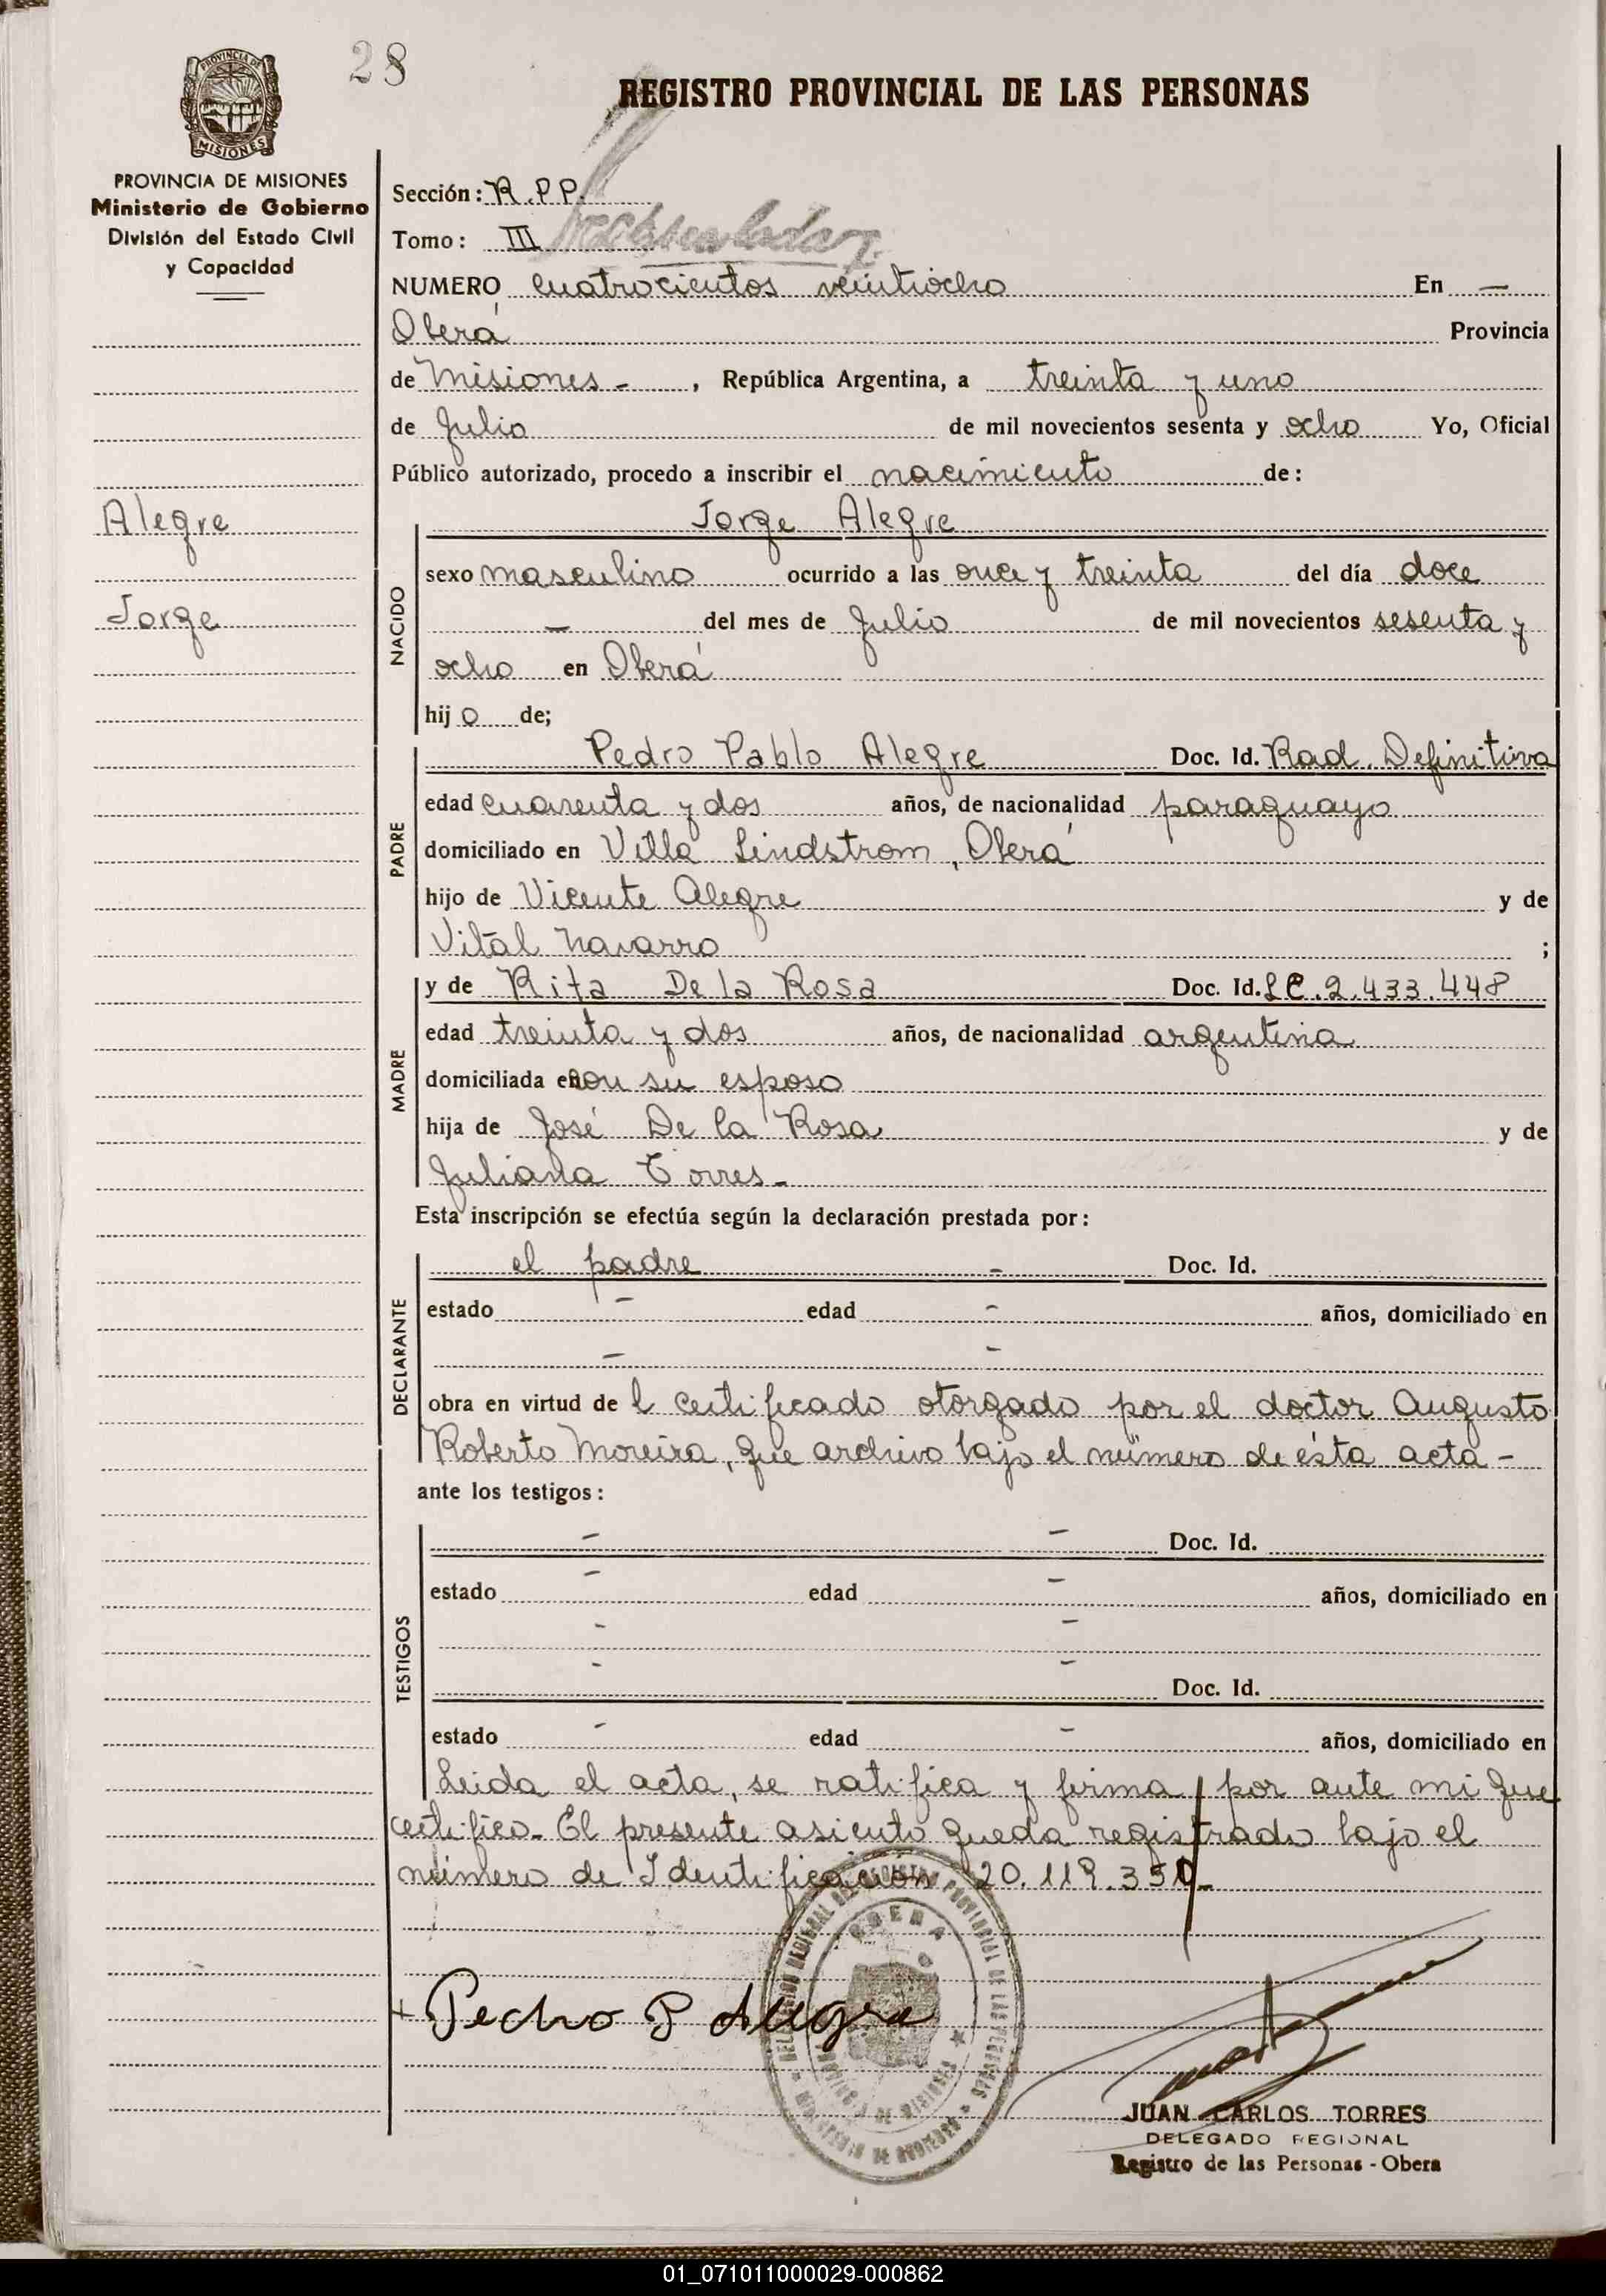 28
PROVINCIA DE
MISIONES
REGISTRO PROVINCIAL DE LAS PERSONAS
PROVINCIA DE MISIONES
Ministerio de Gobierno
División del Estado Civil
y Capacidad
Sección: R.P.P.
Tomo: III
NUMERO cuatrocientos veintiocho En —
Oberá Provincia
de Misiones - , República Argentina, a treinta y uno
de Julio de mil novecientos sesenta y ocho Yo, Oficial
Público autorizado, procedo a inscribir el nacimiento de:
Alegre
Jorge
NACIDO
Jorge Alegre
sexo masculino ocurrido a las once y treinta del día doce
— del mes de Julio de mil novecientos sesenta y
ocho en Oberá
hijo de;
PADRE
Pedro Pablo Alegre Doc. Id. Rad. Definitiva
edad cuarenta y dos años, de nacionalidad paraguayo
domiciliado en Villa Lindstrom, Oberá
hijo de Vicente Alegre y de
Vital Navarro ;
MADRE
y de Rita De la Rosa Doc. Id. LC.2.433.448
edad treinta y dos años, de nacionalidad argentina
domiciliada en con su esposo
hija de José De la Rosa y de
Juliana Torres -
Esta inscripción se efectúa según la declaración prestada por:
DECLARANTE
el padre - Doc. Id.
estado - edad - años, domiciliado en
- -
obra en virtud de l certificado otorgado por el doctor Augusto
Roberto Moreira, que archivo bajo el número de ésta acta -
ante los testigos:
TESTIGOS
- - Doc. Id.
estado - edad - años, domiciliado en
- -
- - Doc. Id.
estado - edad - años, domiciliado en
Leida el acta, se ratifica y firma por ante mi que
certifico - El presente asiento queda registrado bajo el
número de Identificación 20.119.350 -
DELEGACION REGIONAL DEL REGISTRO PROVINCIAL DE LAS PERSONAS
OBERA
PROVINCIA DE MISIONES
MINISTERIO DE GOBIERNO
+ Pedro P Alegre
JUAN CARLOS TORRES
DELEGADO REGIONAL
Registro de las Personas - Obera
01_071011000029-000862